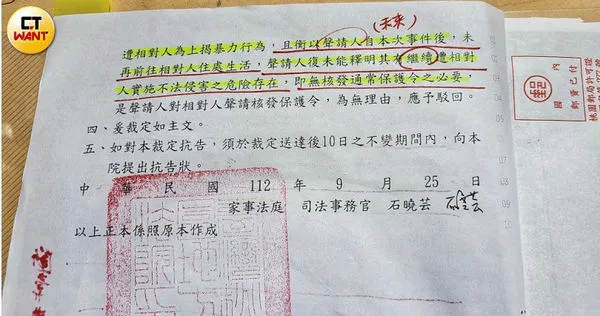 CTWANT
(未來)
遭相對人為上揭暴力行為，且衡以聲請人自本次事件後，未
再前往相對人住處生活，聲請人復未能釋明其有繼續遭相對
人實施不法侵害之危險存在，即無核發通常保護令之必要。
是聲請人對相對人聲請核發保護令，為無理由，應予駁回。
四、爰裁定如主文。
五、如對本裁定抗告，須於裁定送達後10日之不變期間內，向本
院提出抗告狀。
中華民國112年9月25日
家事法庭 司法事務官 石曉芸
以上正本係照原本作成
國內
郵資已付
桃園郵局許可證
01
02
03
04
05
06
07
08
09
10